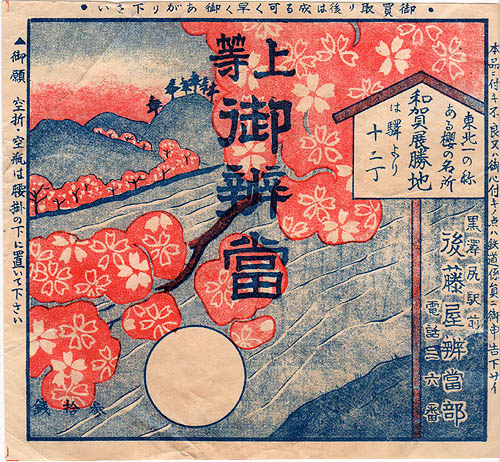 ・御買取り後は成る可く早く御あがり下さい・
本品ニ付キ不良又ハ御心付キノ点ハ鉄道係員ニ御申告下サイ
上等
御辨當
東北一の称
ある櫻の名所
和賀展勝地
は驛より
十二丁
黒澤尻駅前
後藤屋辨當部
電話三六番
参拾銭
▲御願 空折・空瓶は腰掛の下に置いて下さい